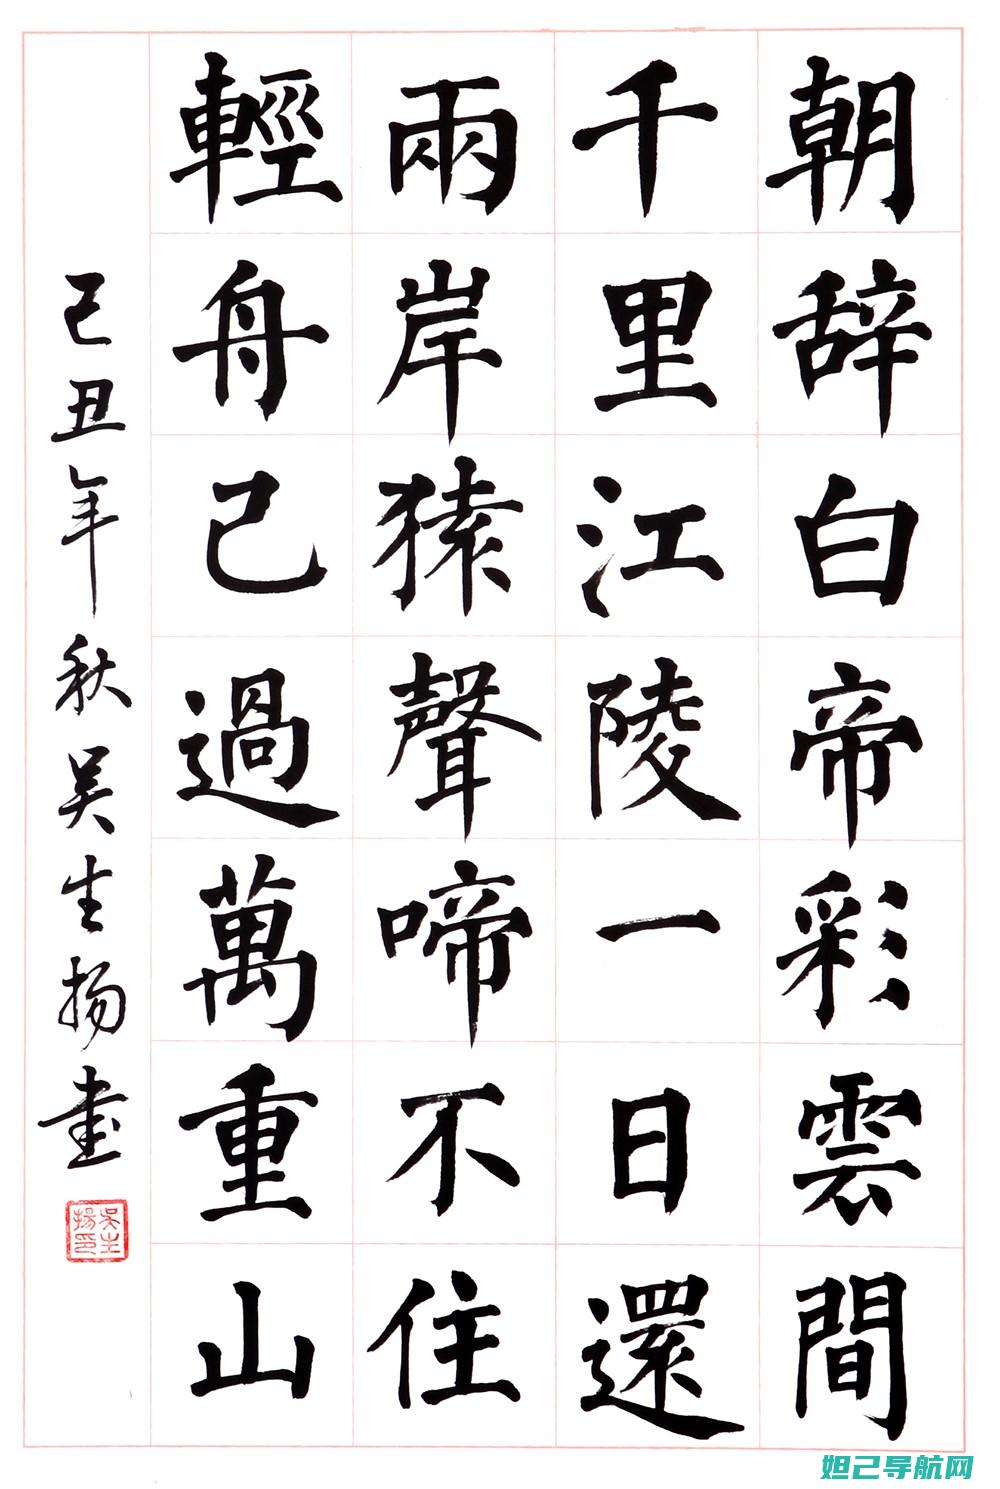 朝辞白帝彩雲間
千里江陵一日還
兩岸猿聲啼不住
輕舟已過萬重山
己丑年秋吴生扬書
吴生揚印
妲己导航网